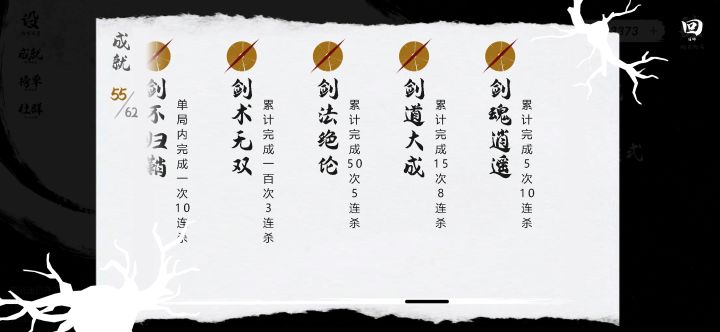 设
成就
榜单
社群
成就
55/62
剑不归鞘
单局内完成一次10连杀
剑术无双
累计完成一百次3连杀
剑法绝伦
累计完成50次5连杀
剑道大成
累计完成15次8连杀
剑魂逍遥
累计完成5次10连杀
回